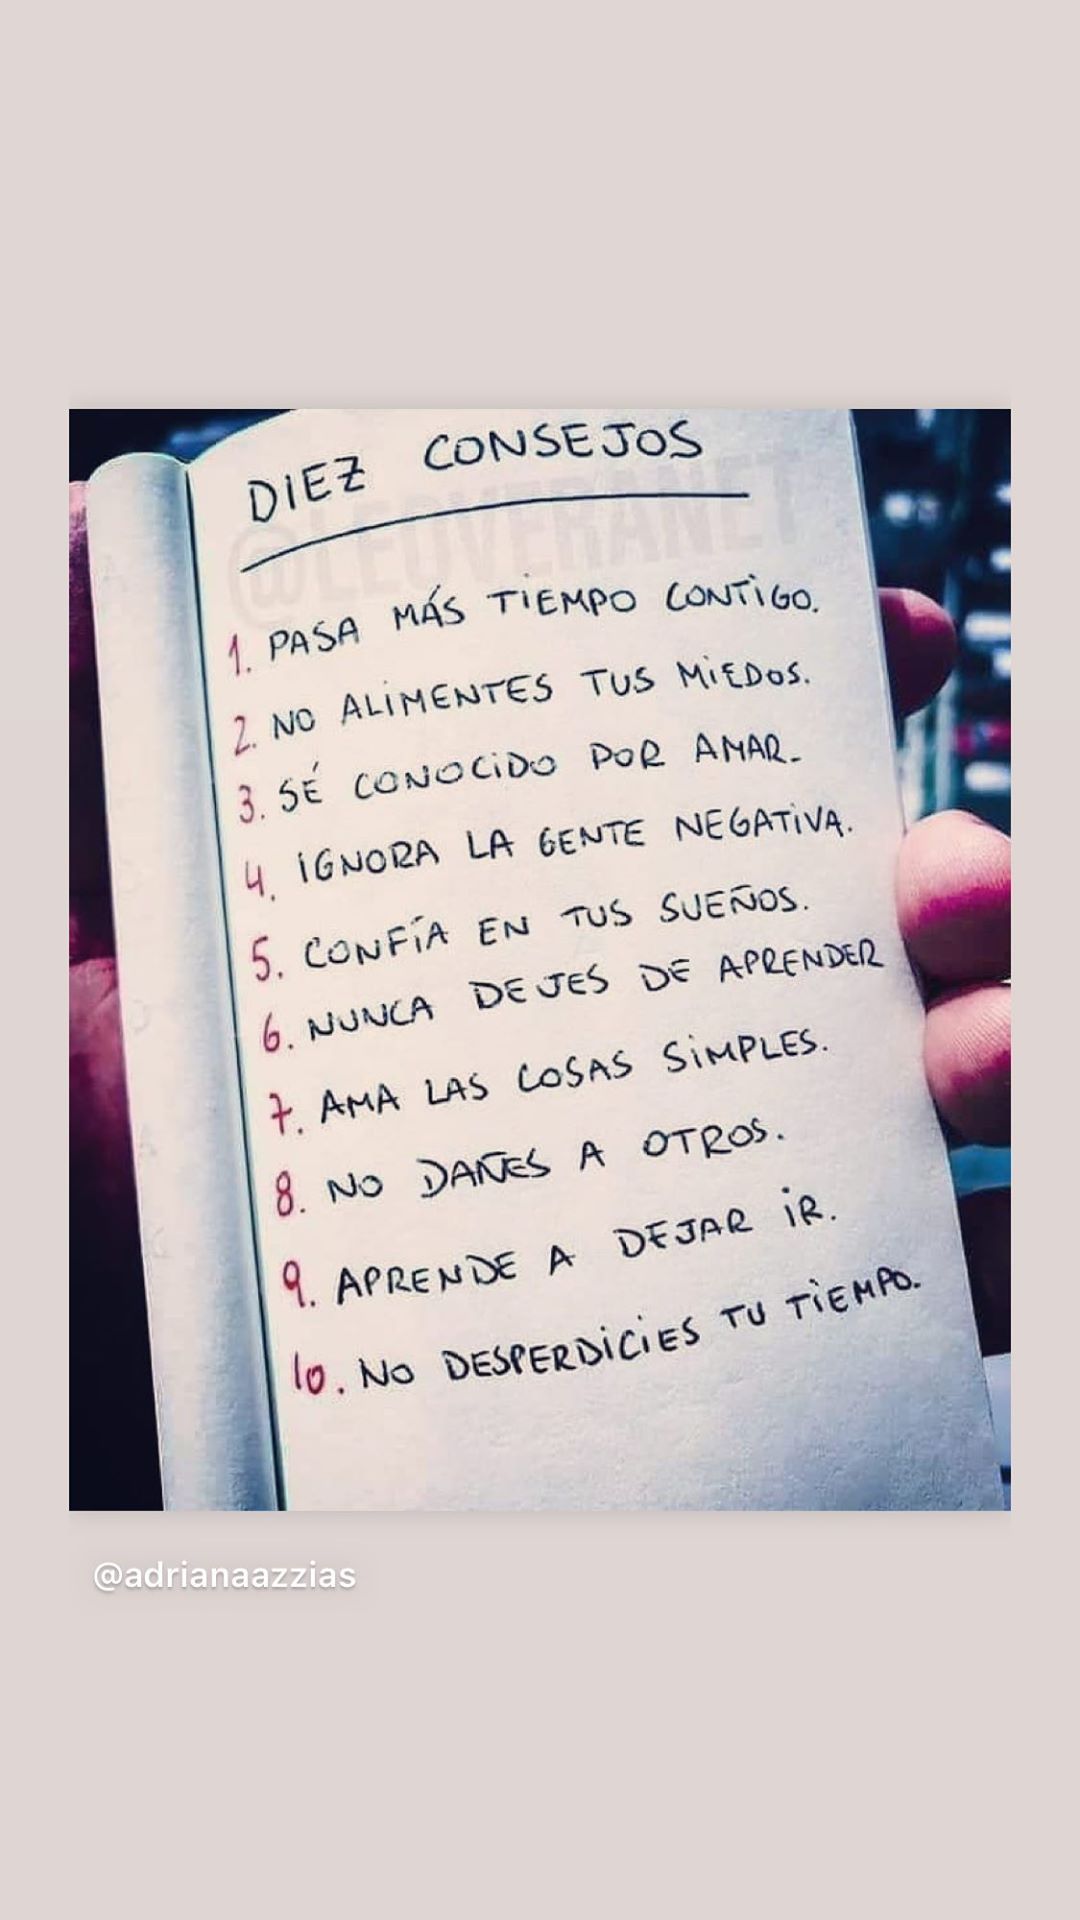 DIEZ CONSEJOS
@LEOVERANET
1. PASA MÁS TIEMPO CONTIGO.
2. NO ALIMENTES TUS MIEDOS.
3. SÉ CONOCIDO POR AMAR.
4. IGNORA LA GENTE NEGATIVA.
5. CONFÍA EN TUS SUEÑOS.
6. NUNCA DEJES DE APRENDER
7. AMA LAS COSAS SIMPLES.
8. NO DAÑES A OTROS.
9. APRENDE A DEJAR IR.
10. NO DESPERDICIES TU TIEMPO.
@adrianaazzias